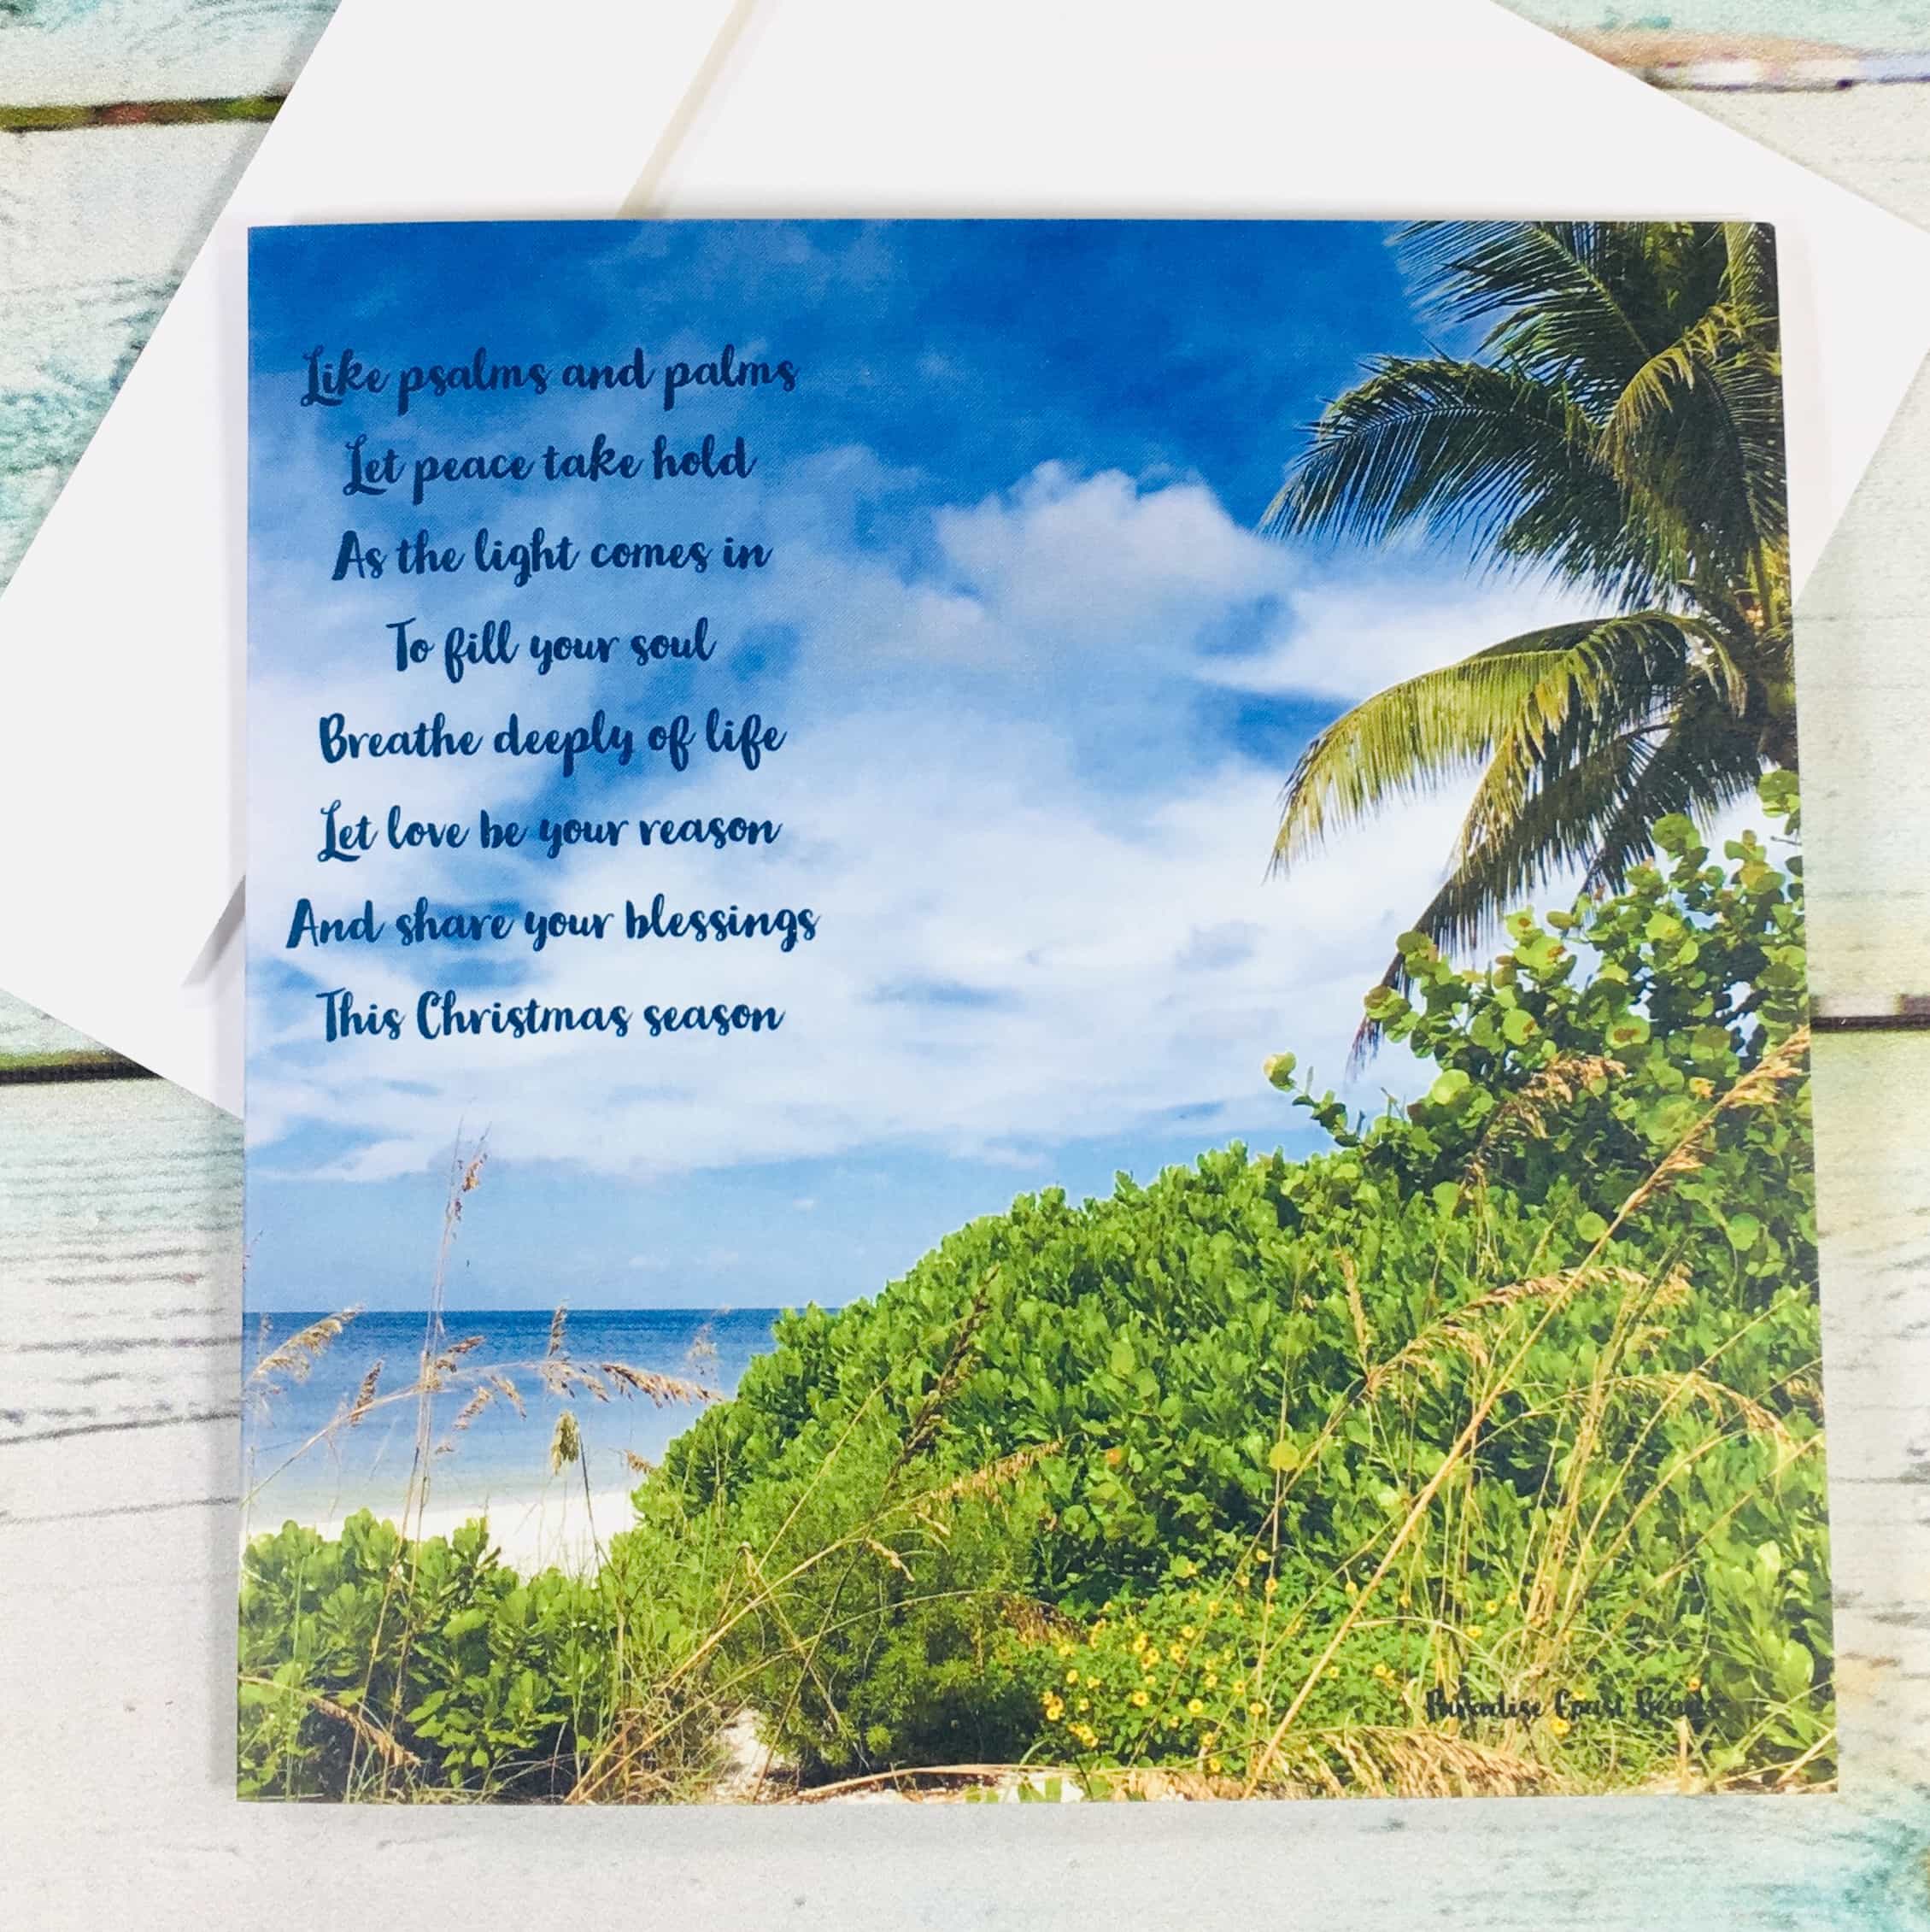 Like psalms and palms
Let peace take hold
As the light comes in
To fill your soul
Breathe deeply of life
Let love be your reason
And share your blessings
This Christmas season
Paradise Coast